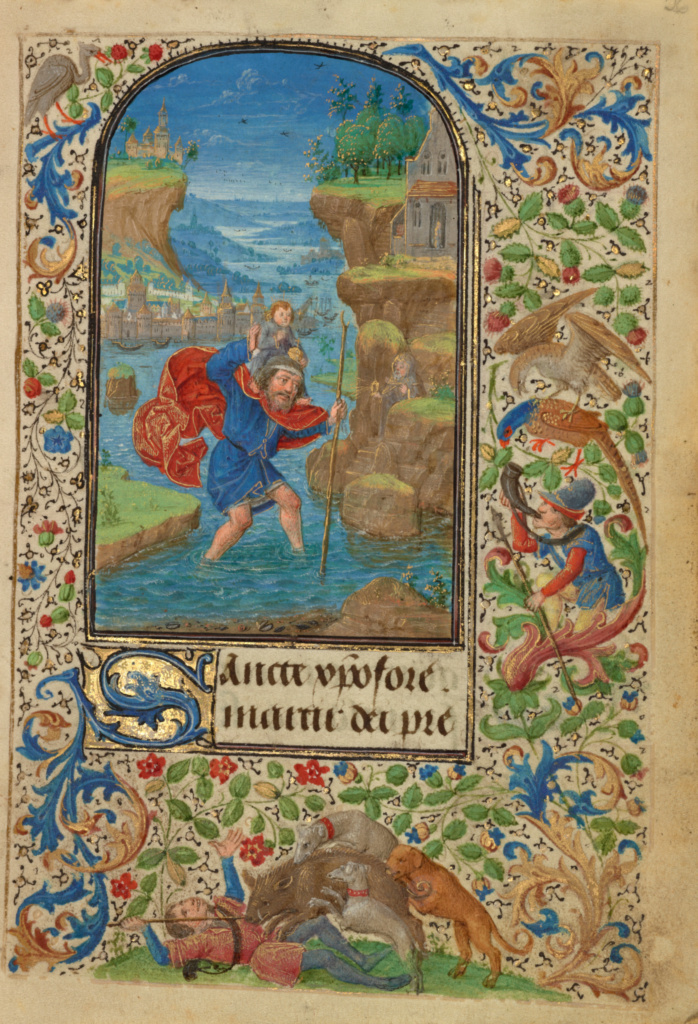 Sancte xp̄ofore.
martir dei pre